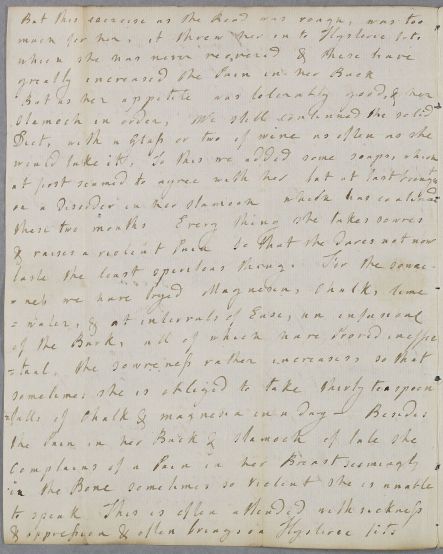 But this exercise as the Road was rough, was too
much for her, it threw her in to Hysteric fits,
which she has never recovered & these have
greatly increased the Pain in her Back
But as her appetite was tolerably good, & her
Stamoch in order, We still continued the solid
Diet, with a Glass or two of wine as often as she
would take it. To this we added some soaps, which
at first seamed to agree with her but at last brought
on a Disorder in her stamoch which has continued
these two months Every thing she takes sowres
& raises a violent Pain So that she dares not now
taste the least spirituous thing. For the sowre-
= ness we have tryed Magnesia, Chalk, lime
= water, & at intervals of Ease, an infusion
of the Bark, all of which have proved ineffec
= tual. the sowreness rather increases so that
sometimes she is obliged to take thirty teaspoon
=fulls of Chalk & magnesia in a Day Besides
the Pain in her Back & stamoch of late she
Complains of a Pain in her Breast seemingly
in the Bone sometimes so violent she is unable
to speak This is often attended with sickness
& oppression & often brings on Hysteric fits